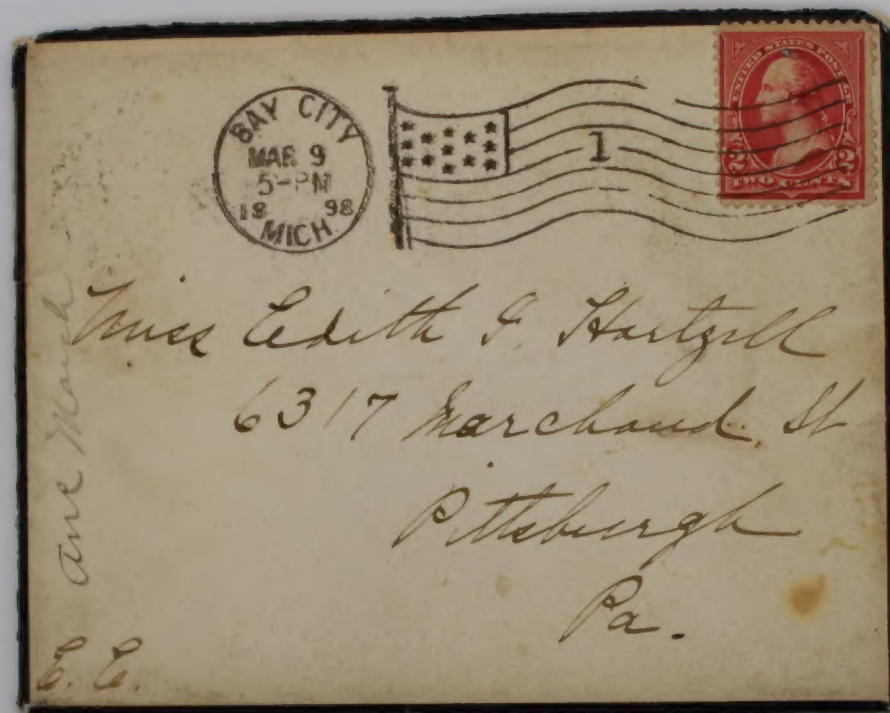 BAY CITY
MAR 9
5-PM
1898
MICH.
1
UNITED STATES POSTAGE
2 2
TWO CENTS
Miss Edith I. Hartzell
6317 Marchand St
Pittsburgh
Pa.
E. C.
March